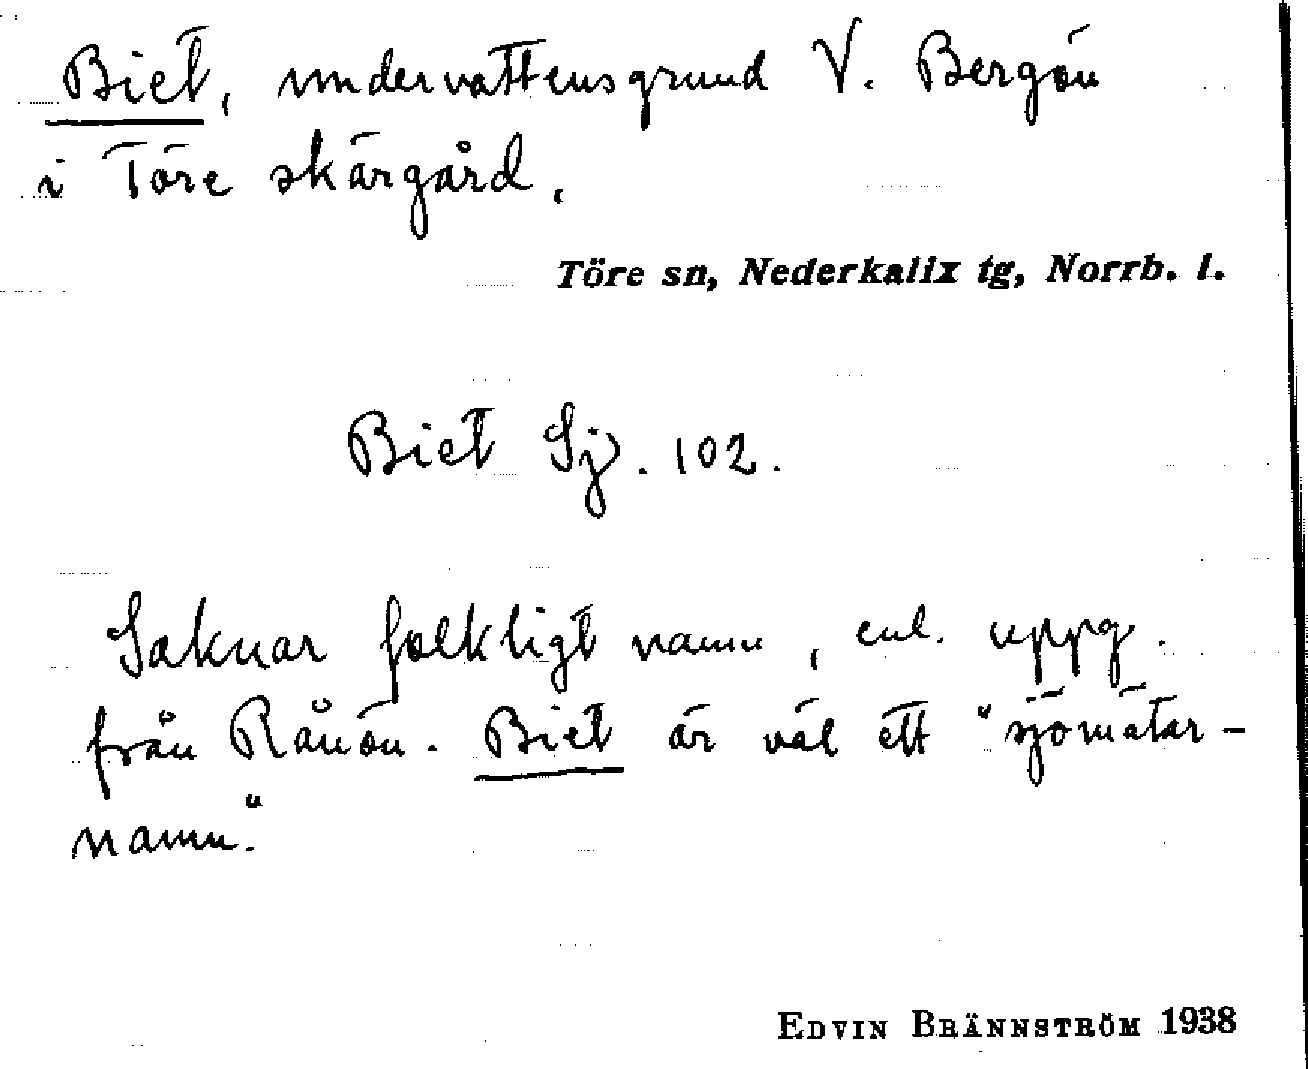 Biet, undervattensgrund V. Bergön
i Töre skärgård.
Töre sn, Nederkalix tg, Norrb. l.
Biet Sj. 102.
Saknar folkligt namn, enl. uppg.
från Rånön. Biet är väl ett "sjömätar-
namn".
EDVIN BRÄNNSTRÖM 1938